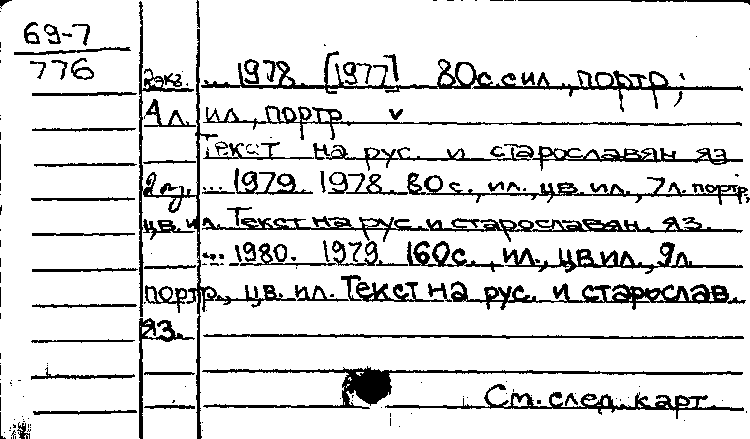 69-7
776
2экз. ... 1978. [1977] 80с. с ил., портр.;
4 л. ил., портр. v
Текст на рус. и старославян яз
2 экз. ... 1979. 1978. 80 с., ил., цв. ил., 7л. портр,
цв. ил. Текст на рус. и старославян. яз.
... 1980. 1979. 160с., ил., цв ил., 9л.
портр., цв. ил. Текст на рус. и старослав.
яз.
См. след. карт.